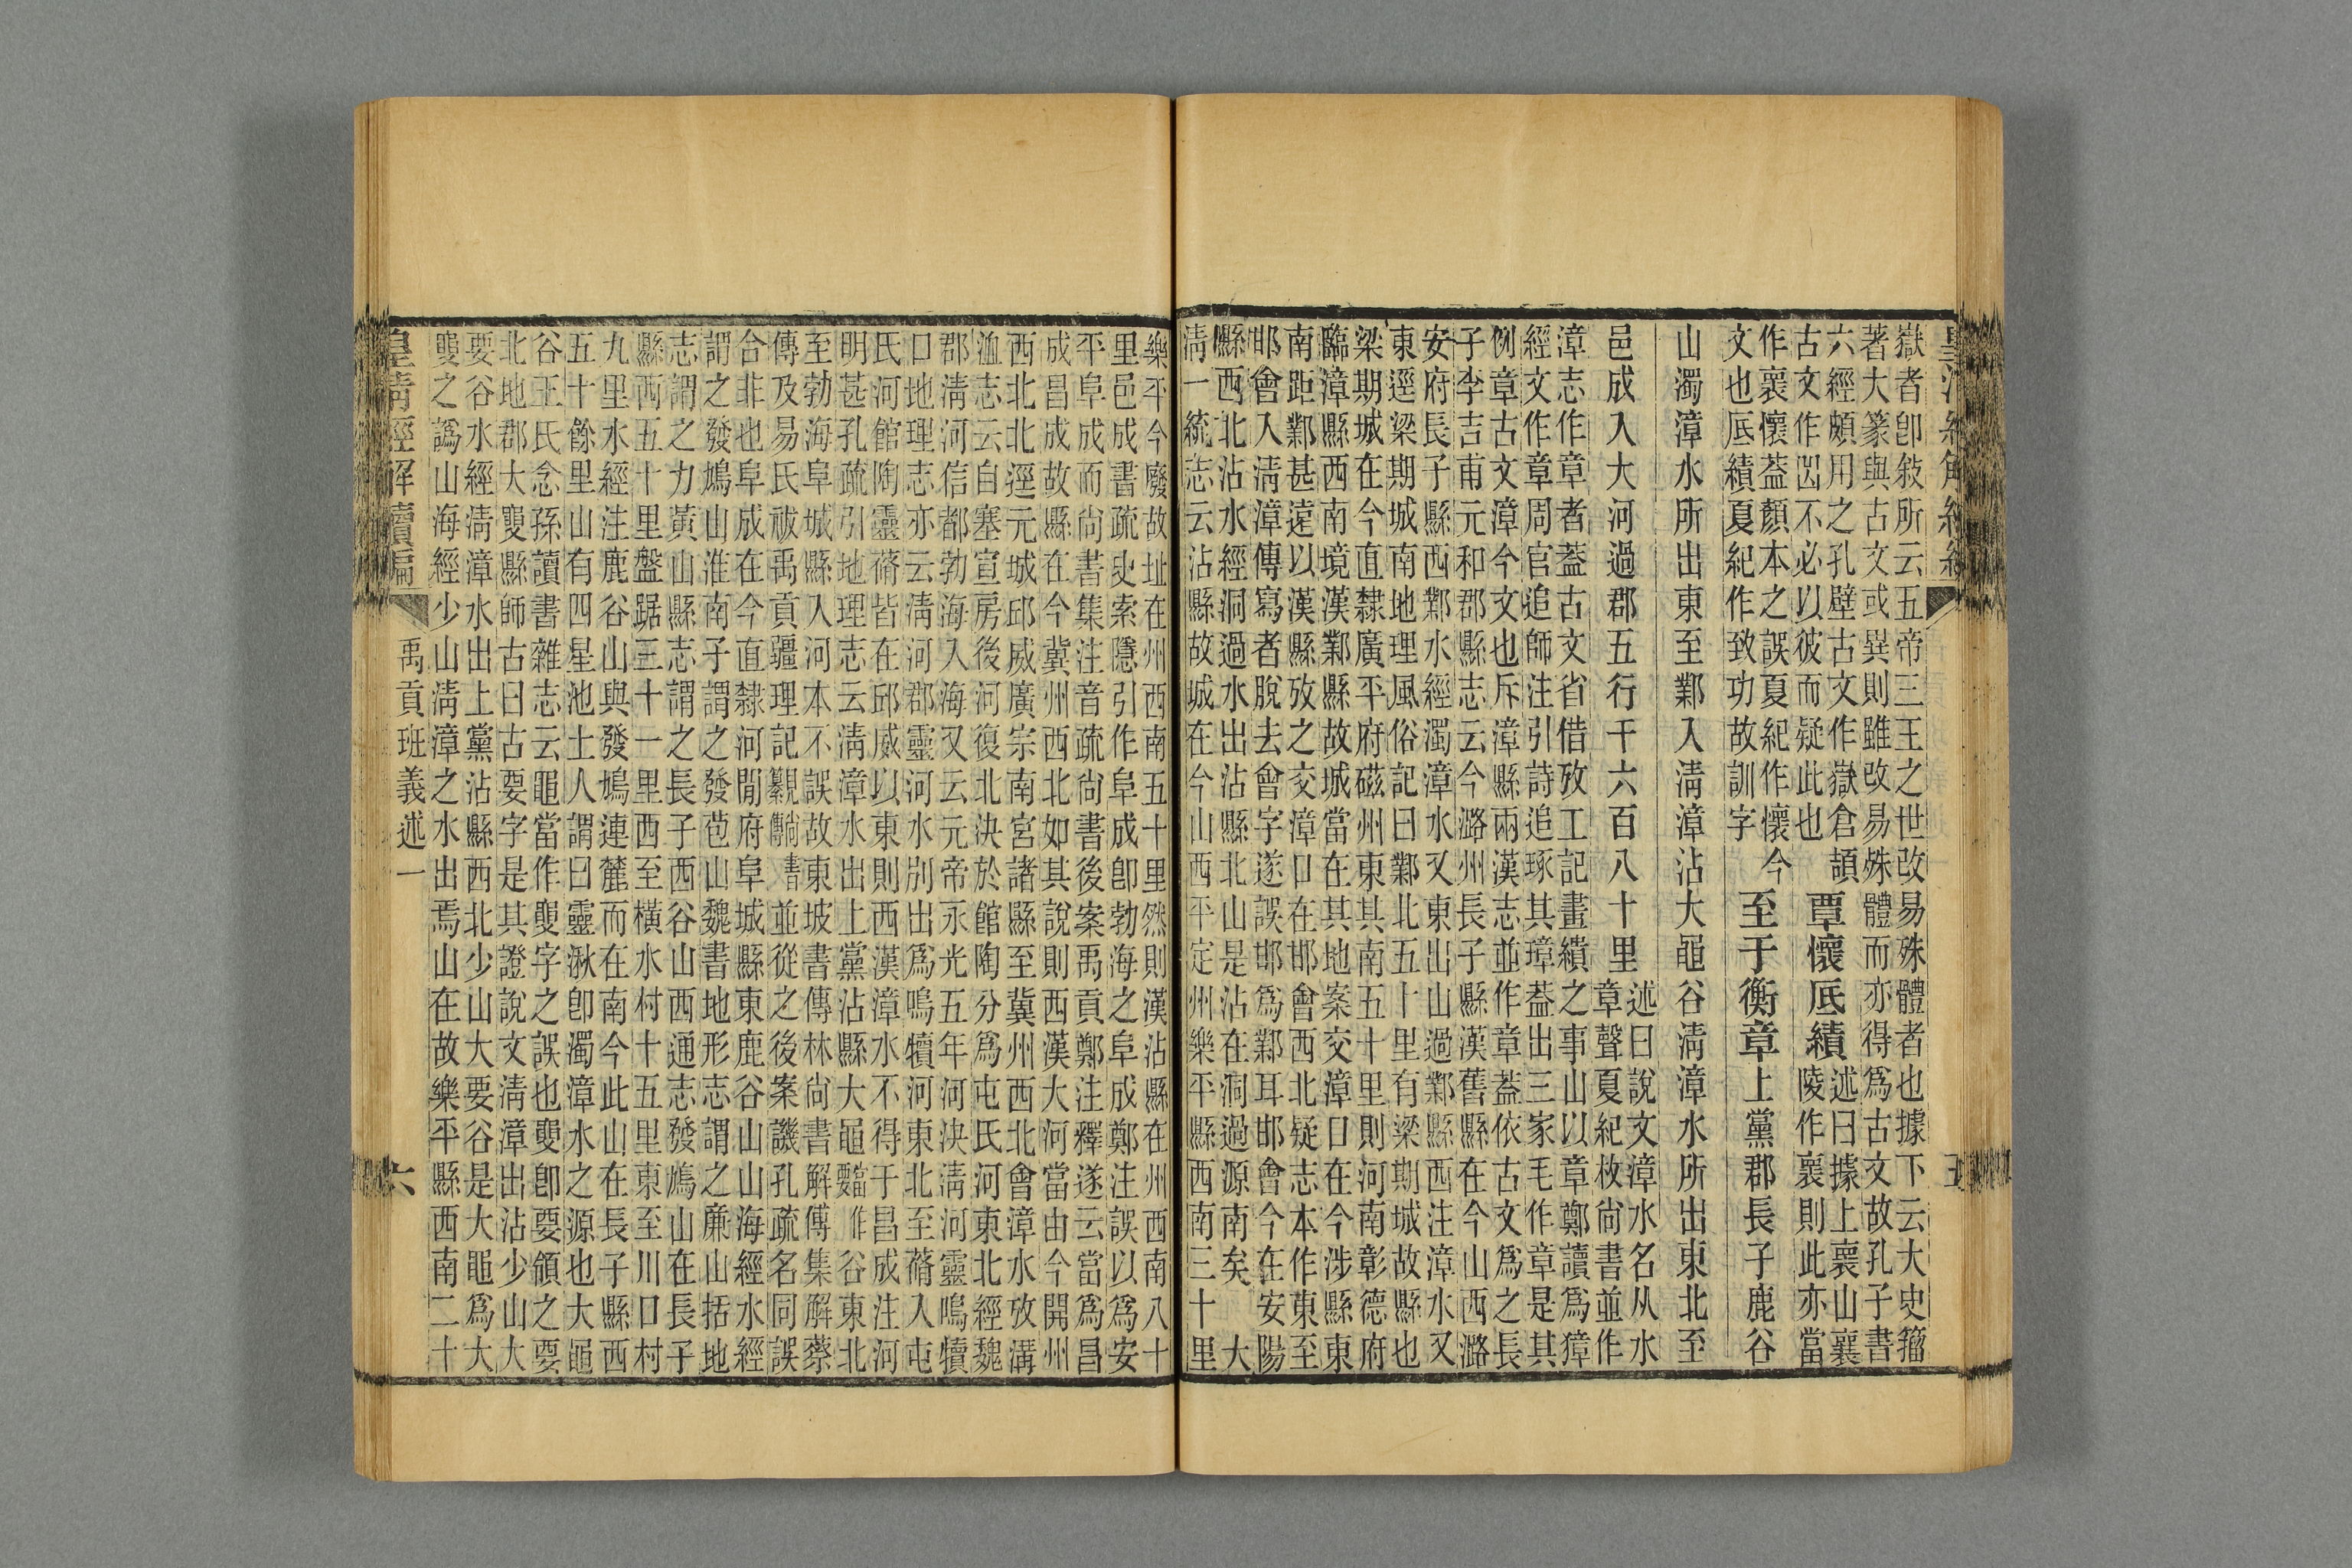 嶽者卽敍所云五帝三王之世改易殊體者也據下云大史籀
著大篆與古文或異則雖改易殊體而亦得爲古文故孔子書
六經頗用之孔壁古文作嶽倉頡
覃懷厎績
述曰據上襄山襄
古文作𡶳不必以彼而疑此也
陵作襄則此亦當
作襄懷葢顏本之誤夏紀作懷今
文也厎績夏紀作致功故訓字
至于衡章上黨郡長子鹿谷
山濁漳水所出東至鄴入淸漳沾大黽谷淸漳水所出東北至
邑成入大河過郡五行千六百八十里
述曰說文漳水名从水
章聲夏紀枚尙書並作
漳志作章者葢古文省借攷工記畫繢之事山以章鄭讀爲獐
經文作章周官追師注引詩追琢其璋葢出三家毛作章是其
例章古文漳今文也斥漳縣兩漢志並作章葢依古文爲之長
子李吉甫元和郡縣志云今潞州長子縣漢舊縣在今山西潞
安府長子縣西鄴水經濁漳水又東出山過鄴縣西注漳水又
東逕梁期城南地理風俗記曰鄴北五十里有梁期城故縣也
梁期城在今直隸廣平府磁州東其南五十里則河南彰德府
臨漳縣西南境漢鄴縣故城當在其地案交漳口在今涉縣東
南距鄴甚遠以漢縣攷之交漳口在邯會西北疑志本作東至
邯會入淸漳傳寫者脫去會字遂誤邯爲鄴耳邯會今在安陽
縣西北沾水經洞過水出沾縣北山是沾在洞過源南矣大
淸一統志云沾縣故城在今山西平定州樂平縣西南三十里
樂平今廢故址在州西南五十里然則漢沾縣在州西南八十
里邑成書疏史索隱引作阜成卽勃海之阜成鄭注誤以爲安
平阜成而尙書集注音疏尙書後案禹貢鄭注釋遂云當爲昌
成昌成故縣在今冀州西北如其說則西漢大河當由今開州
西北北逕元城邱威廣宗南宮諸縣至冀州西北會漳水攷溝
洫志云自塞宣房後河復北決於館陶分爲屯氏河東北經魏
郡淸河信都勃海入海又云元帝永光五年河決淸河靈鳴犢
口地理志亦云淸河郡靈河水別出爲鳴犢河東北至蓨入屯
氏河館陶靈蓨皆在邱威以東則西漢漳水不得于昌成注河
明甚孔疏引地理志云淸漳水出上黨沾縣大黽谷東北
至勃海阜城縣入河本不誤故東坡書傳林尙書解傅集解蔡
傳及易氏祓禹貢疆理記並從之後案譏孔疏名同誤
合非也阜成在今直隸河閒府阜城縣東鹿谷山山海經水經
謂之發鳩山淮南子謂之發苞山魏書地形志謂之廉山括地
志謂之力黃山縣志謂之長子西谷山西通志發鳩山在長子
縣西五十里盤踞三十一里西至橫水村十五里東至川口村
九里水經注鹿谷山與發鳩連麓而在南今此山在長子縣西
五十餘里山有四星池土人謂曰靈湫卽濁漳水之源也大黽
谷王氏念孫讀書雜志云黽當作㚇字之誤也㚇卽要領之要
北地郡大㚇縣師古曰古要字是其證說文淸漳出沾少山大
要谷水經淸漳水出上黨沾縣西北少山大要谷是大黽爲大
㚇之譌山海經少山淸漳之水出焉山在故樂平縣西南二十
皇淸經解續編
禹貢班義述一
六